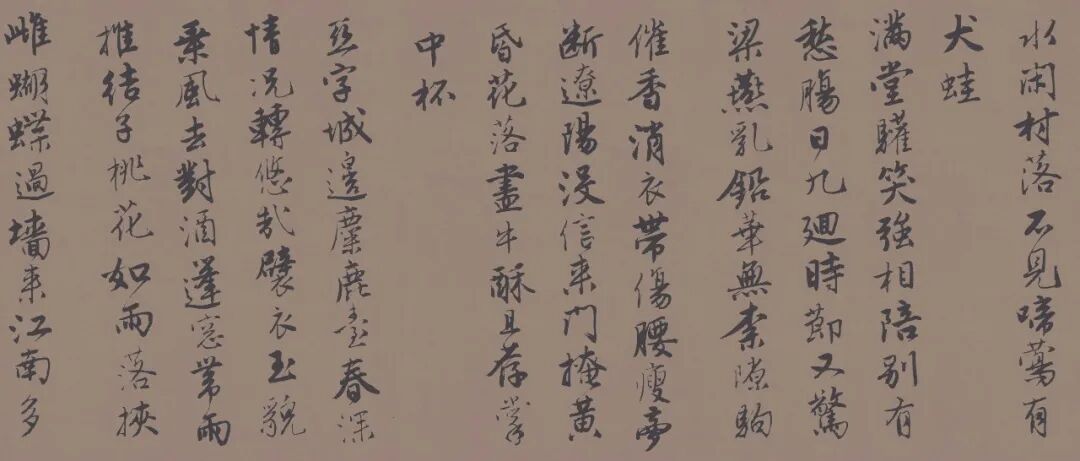 水闲村落不見啼鶯有
犬蛙
滿堂驩笑強相陪別有
愁腸日九迴時節又驚
梁燕乳鉛華無柰隙駒
催香消衣帶傷腰瘦夢
斷遼陽没信来門掩黄
昏花落盡牛酥且荐掌
中杯
亞字城邊麋鹿臺春深
情况轉悠哉襞衣玉貌
乗風去對酒蓬窓帶雨
推結子桃花如雨落挾
雌蝴蝶過墻来江南多